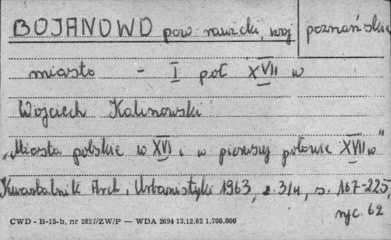 BOJANOWO pow. rawicki, woj poznańskie
miasto - I poł XVII w
Wojciech Kalinowski
"Miasta polskie w XVI i w pierwszej połowie XVII w"
Kwartalnik Arch. i Urbanistyki 1963, z. 3/4, s. 167-225,
ryc. 62
CWD - B-15-b, nr 2827/ZW/P — WDA 2694 13.12.62 1.700.000